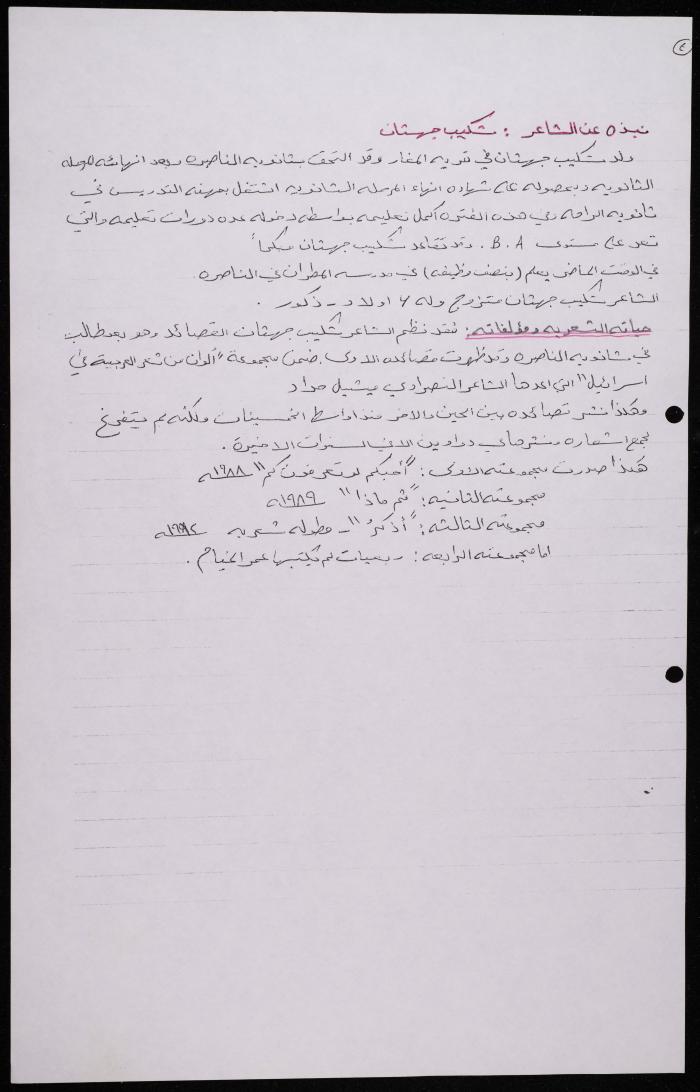 ٤
نبذه عن الشاعر : شكيب جهشان
ولد شكيب جهشان في قريه المغار وقد التحق بثانويه الناصره وبعد انهائه
الثانويه وبحصوله على شهاده انهاء المرحله الثانويه اشتغل بمهنه التدريس في
ثانويه الرامه وفي هذه الفتره أكمل تعليمه بواسطه دخوله عده دورات تعليميه والتي
تعد على مستوى B.A. وقد تقاعد شكيب جهشان مبكراً
في الوقت الحاضر يعلم (بنصف وظيفه) في مدرسه المطران في الناصره
الشاعر شكيب جهشان متزوج وله ٤ اولاد - ذكور .
حياته الشعريه ومؤلفاته: لقد نظم الشاعر شكيب جهشان القصائد وهو بعد طالب
في ثانويه الناصره وقد ظهرت قصائده الاولى ضمن مجموعة "ألوان من شعر العربية في
اسرائيل" التي اعدها الشاعر النصراوي ميشيل حداد
وهكذا نشر قصائده بين الحين والاخر منذ اواسط الخمسينات ولكنه لم يتفرغ
لجمع اشعاره ونشرها في دواوين الا في السنوات الاخيرة .
هكذا صدرت مجموعته الاولى: "أحبكم لو تعرفون كم" ١٩٨٨م
مجموعته الثانيه: "ثم ماذا" ١٩٨٩م
مجموعته الثالثه: "أذكرُ" - مطوله شعريه ١٩٩٢م
اما مجموعته الرابعه: رباعيات لم يكتبها عمر الخيام .